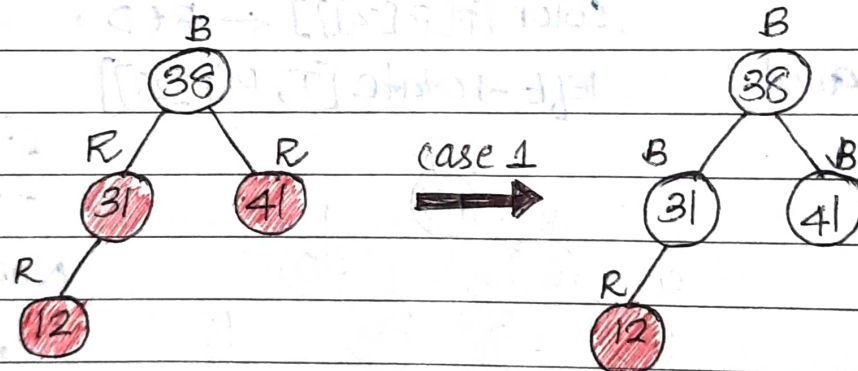 B
38
R R
31 41
R
12
case 1
B
38
B B
31 41
R
12